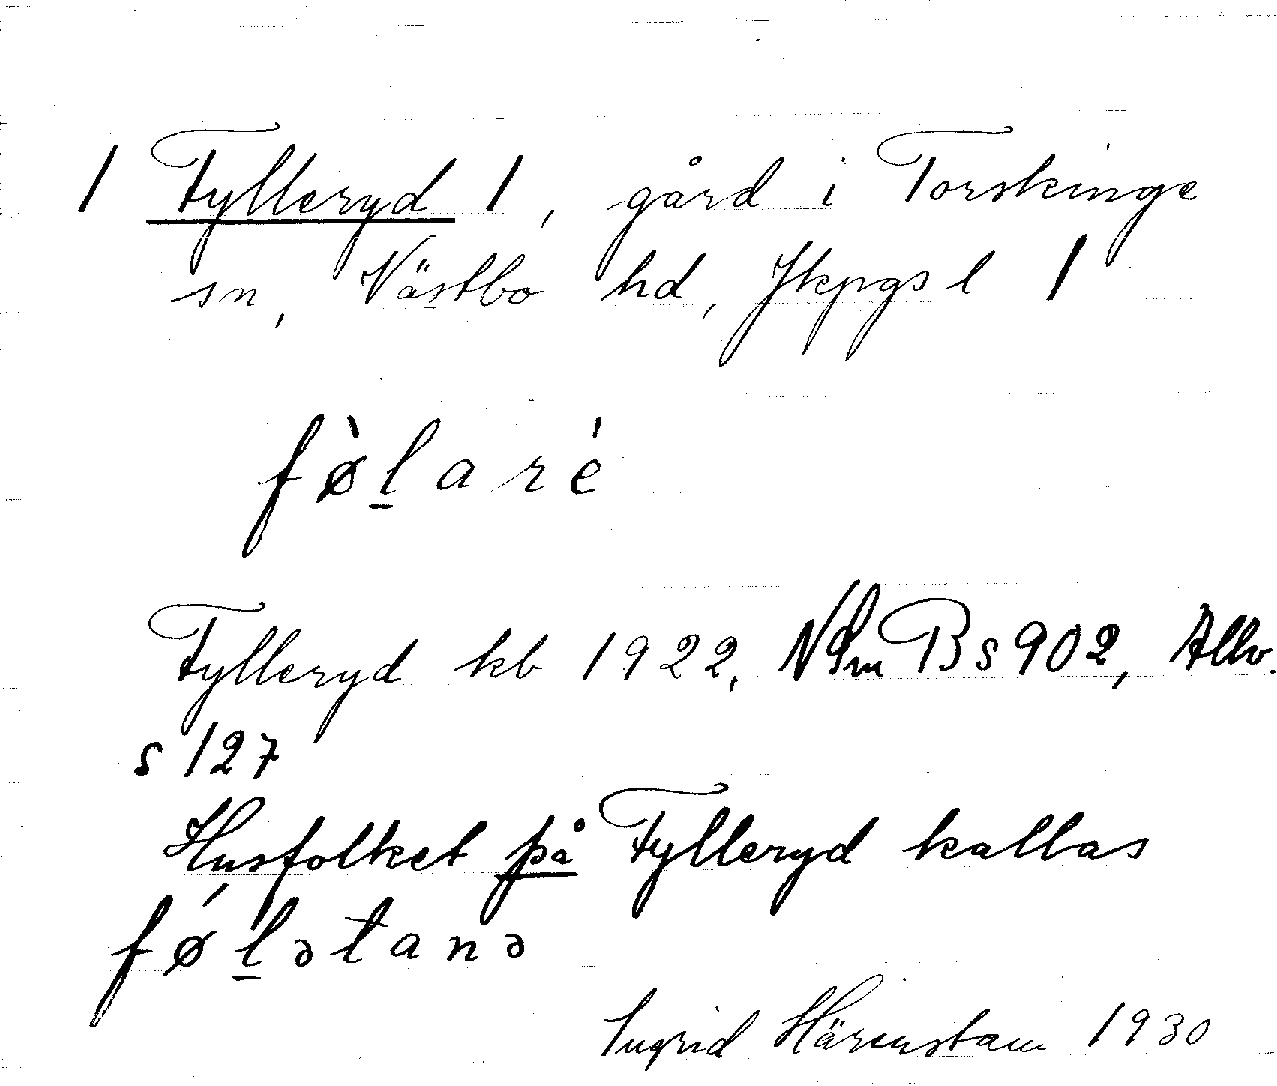 / Fylleryd /, gård i Torskinge
sn, Västbo hd, Jkpgs l /
fø̀l̠aré
Fylleryd kb 1922. NSm B s 902, Allv.
s 127
Husfolket på Fylleryd kallas
fǿl̠ətanə
Ingrid Härenstam 1930